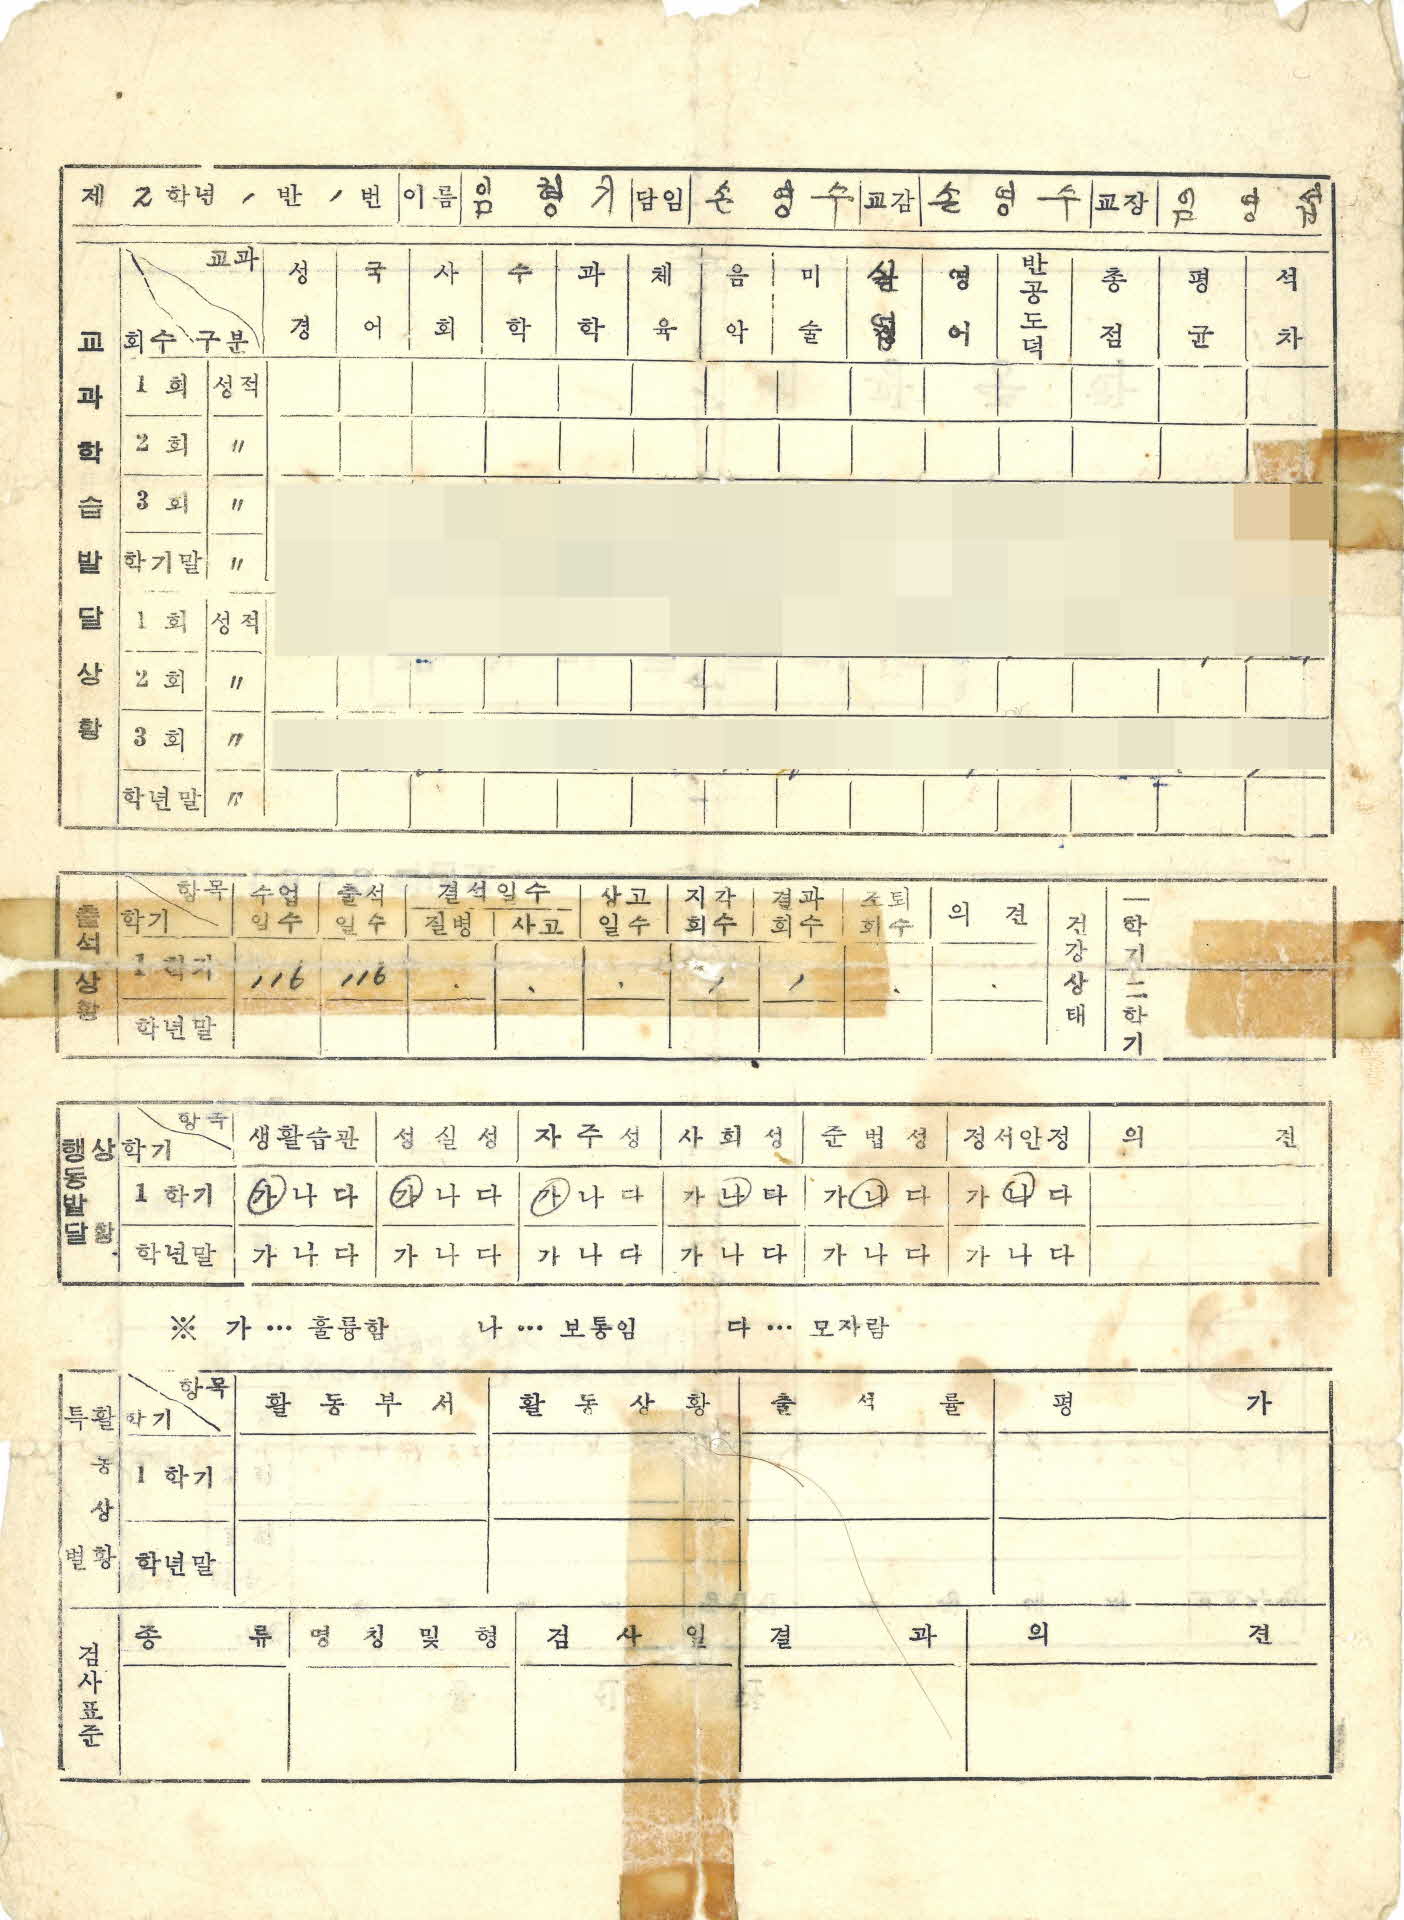 제 2 학년 1 반 1 번 이름 임형기 담임 손영수 교감 손영수 교장 임영섭
교과학습발달상황
교과
회수 구분
성경 국어 사회 수학 과학 체육 음악 미술 영어 반공도덕 총점 평균 석차
1 회 성적
2 회 〃
3 회 〃
학기말 〃
1 회 성적
2 회 〃
3 회 〃
학년말 〃
출석상황
항목 수업일수 출석일수 결석일수 상고일수 지각회수 결과회수 조퇴회수 의견 건강상태 一학기 二학기
학기 질병 사고
1 학기 116 116 . . . / / . .
학년말
행동발달상황
항목
학기 생활습관 성실성 자주성 사회성 준법성 정서안정 의견
1 학기 가 나 다 가 나 다 가 나 다 가 나 다 가 나 다 가 나 다
학년말 가 나 다 가 나 다 가 나 다 가 나 다 가 나 다 가 나 다
※ 가 … 훌륭함 나 … 보통임 다 … 모자람
특별활동상황
항목
학기 활동부서 활동상황 출석률 평가
1 학기
학년말
검사표준
종류 명칭 및 형 검사일 결과 의견